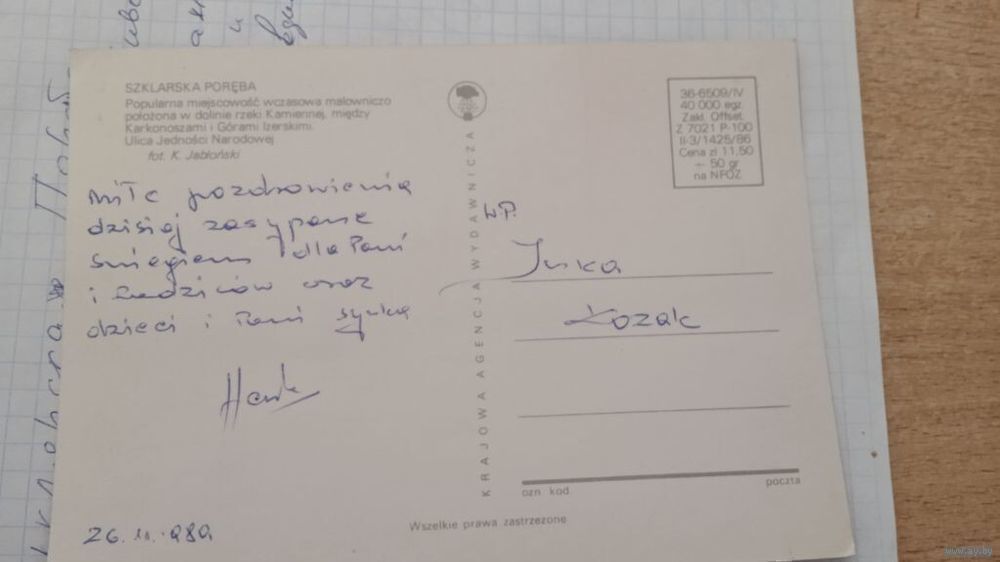 SZKLARSKA PORĘBA
Popularna miejscowość wczasowa malowniczo
położona w dolinie rzeki Kamiennej, między
Karkonoszami i Górami Izerskimi.
Ulica Jedności Narodowej
fot. K. Jabłoński
miłe pozdrowienia
dzisiaj zasypane
śniegiem dla Pani
i Rodziców oraz
dzieci i Pani synka
26. 11. 989
KRAJOWA AGENCJA WYDAWNICZA
36-6509/IV
40 000 egz.
Zakł. Offset.
Z 7021 P-100
II-3/1425/86
Cena zł 11,50
+ 50 gr
na NFOZ
W.P.
Inka
Kozak
ozn. kod.
poczta
Wszelkie prawa zastrzeżone
www.ay.by